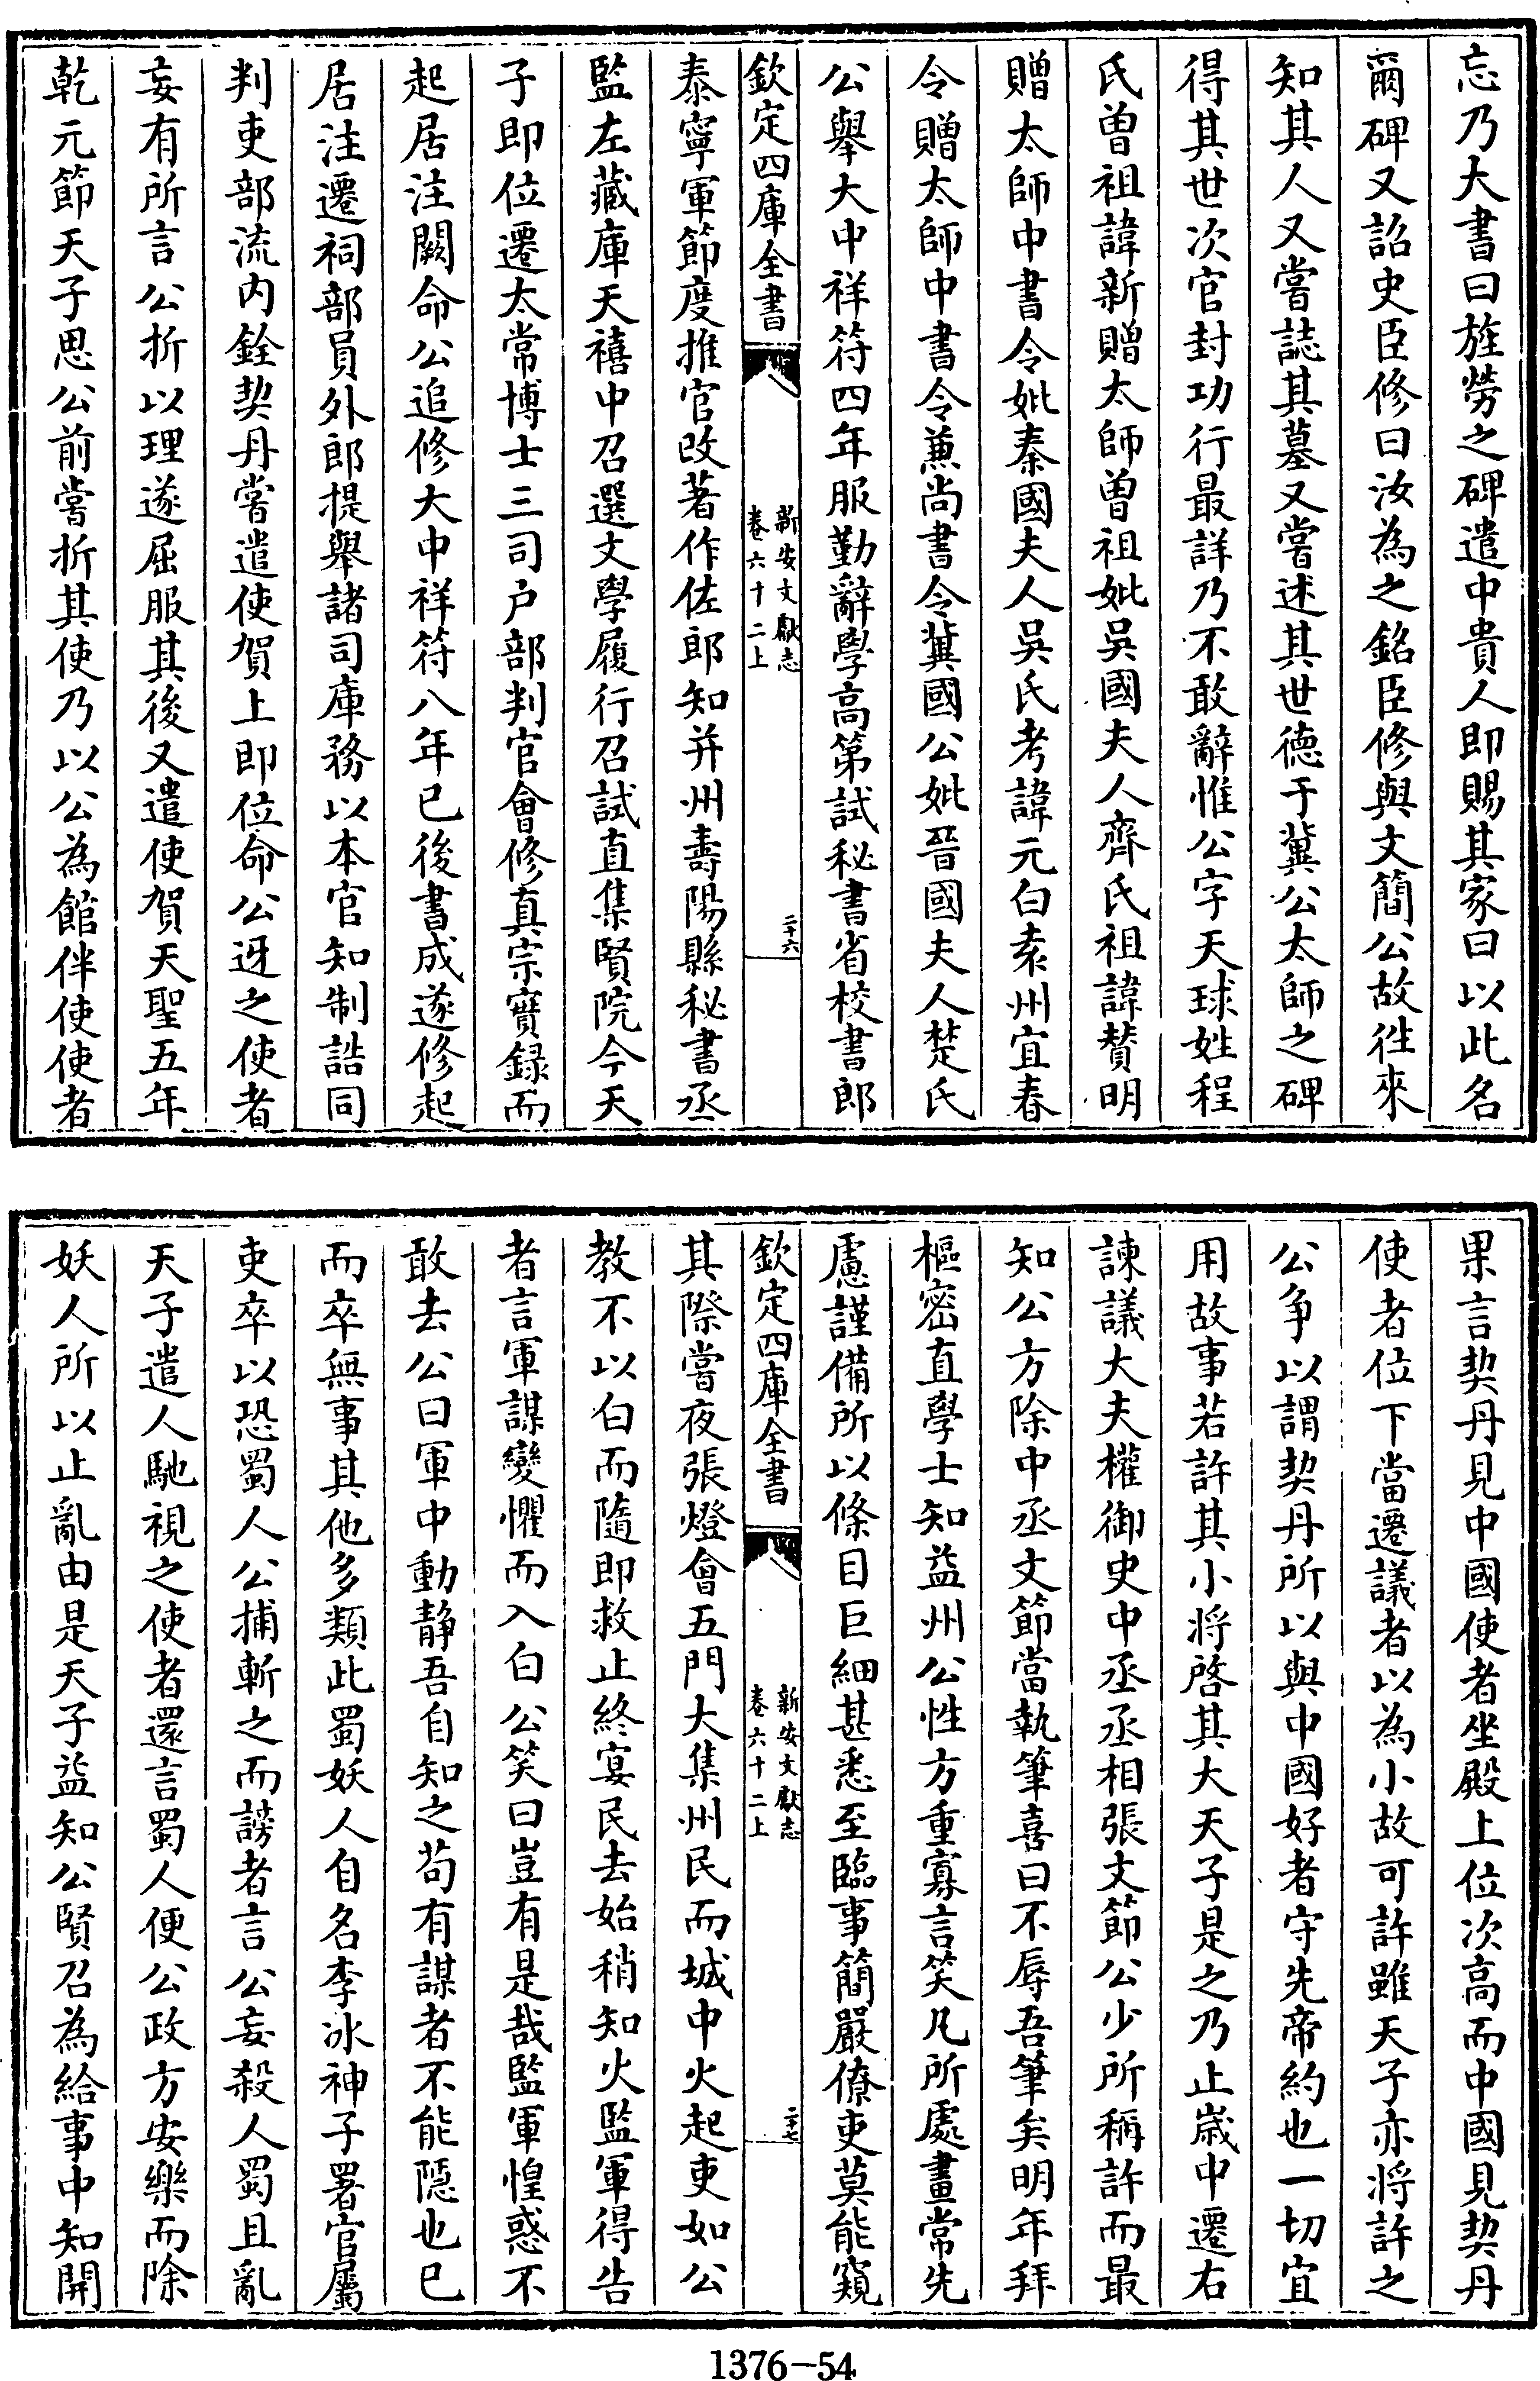 忘乃大書曰旌勞之碑遣中貴人即賜其家曰以此名
爾碑又詔史臣修曰汝為之銘臣修與文簡公故徃來
知其人又嘗誌其墓又嘗述其世德于冀公太師之碑
得其世次官封功行最詳乃不敢辭惟公字天球姓程
氏曽祖諱新贈太師曽祖妣吳國夫人齊氏祖諱賛明
贈太師中書令妣秦國夫人吳氏考諱元白袁州宜春
令贈太師中書令兼尚書令冀國公妣晉國夫人楚氏
公舉大中祥符四年服勤辭學高第試秘書省校書郎
欽定四庫全書
新安文獻志
卷六十二上
二十六
泰寧軍節度推官改著作佐郎知并州壽陽縣秘書丞
監左藏庫天禧中召選文學履行召試直集賢院今天
子即位遷太常博士三司户部判官會修真宗實録而
起居注闕命公追修大中祥符八年已後書成遂修起
居注遷祠部員外郎提舉諸司庫務以本官知制誥同
判吏部流内銓契丹嘗遣使賀上即位命公迓之使者
妄有所言公折以理遂屈服其後又遣使賀天聖五年
乾元節天子思公前嘗折其使乃以公為館伴使使者
果言契丹見中國使者坐殿上位次高而中國見契丹
使者位下當遷議者以為小故可許雖天子亦將許之
公争以謂契丹所以與中國好者守先帝約也一切宜
用故事若許其小將啓其大天子是之乃止歳中遷右
諫議大夫權御史中丞丞相張文節公少所稱許而最
知公方除中丞文節當執筆喜曰不辱吾筆矣明年拜
樞密直學士知益州公性方重寡言笑凡所處畫常先
慮謹備所以條目巨細甚悉至臨事簡嚴僚吏莫能窺
欽定四庫全書
新安文獻志
卷六十二上
二十七
其際嘗夜張燈會五門大集州民而城中火起吏如公
教不以白而隨即救止終宴民去始稍知火監軍得告
者言軍謀變懼而入白公笑曰豈有是哉監軍惶惑不
敢去公曰軍中動静吾自知之茍有謀者不能隱也已
而卒無事其他多類此蜀妖人自名李冰神子署官屬
吏卒以恐蜀人公捕斬之而謗者言公妄殺人蜀且亂
天子遣人馳視之使者還言蜀人便公政方安樂而除
妖人所以止亂由是天子益知公賢召為給事中知開
1376-54